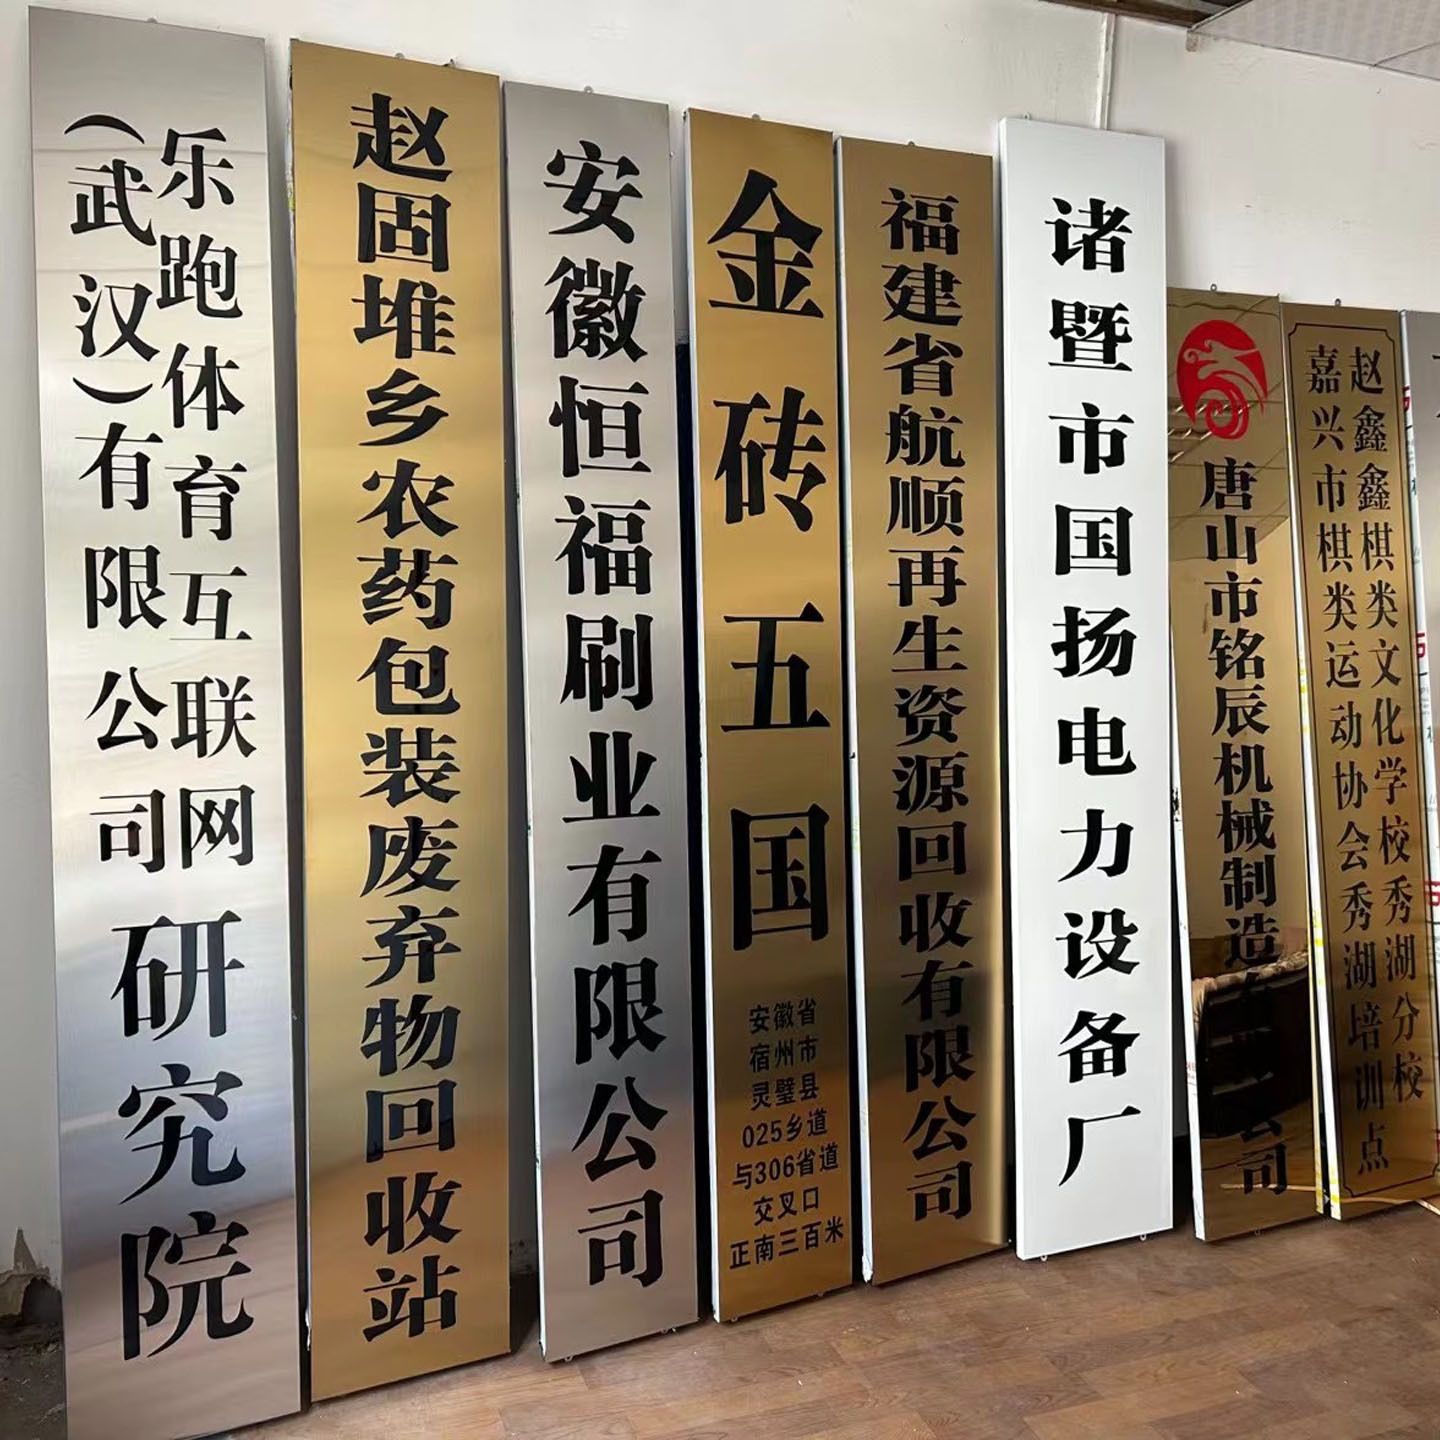 乐跑体育互联网
(武汉)有限公司
研究院
赵固堆乡农药包装废弃物回收站
安徽恒福刷业有限公司
金砖五国
安徽省
宿州市
灵璧县
025乡道
与306省道
交叉口
正南三百米
福建省航顺再生资源回收有限公司
诸暨市国扬电力设备厂
唐山市铭辰机械制造有限公司
赵鑫鑫棋类文化学校秀湖分校
嘉兴市棋类运动协会秀湖培训点